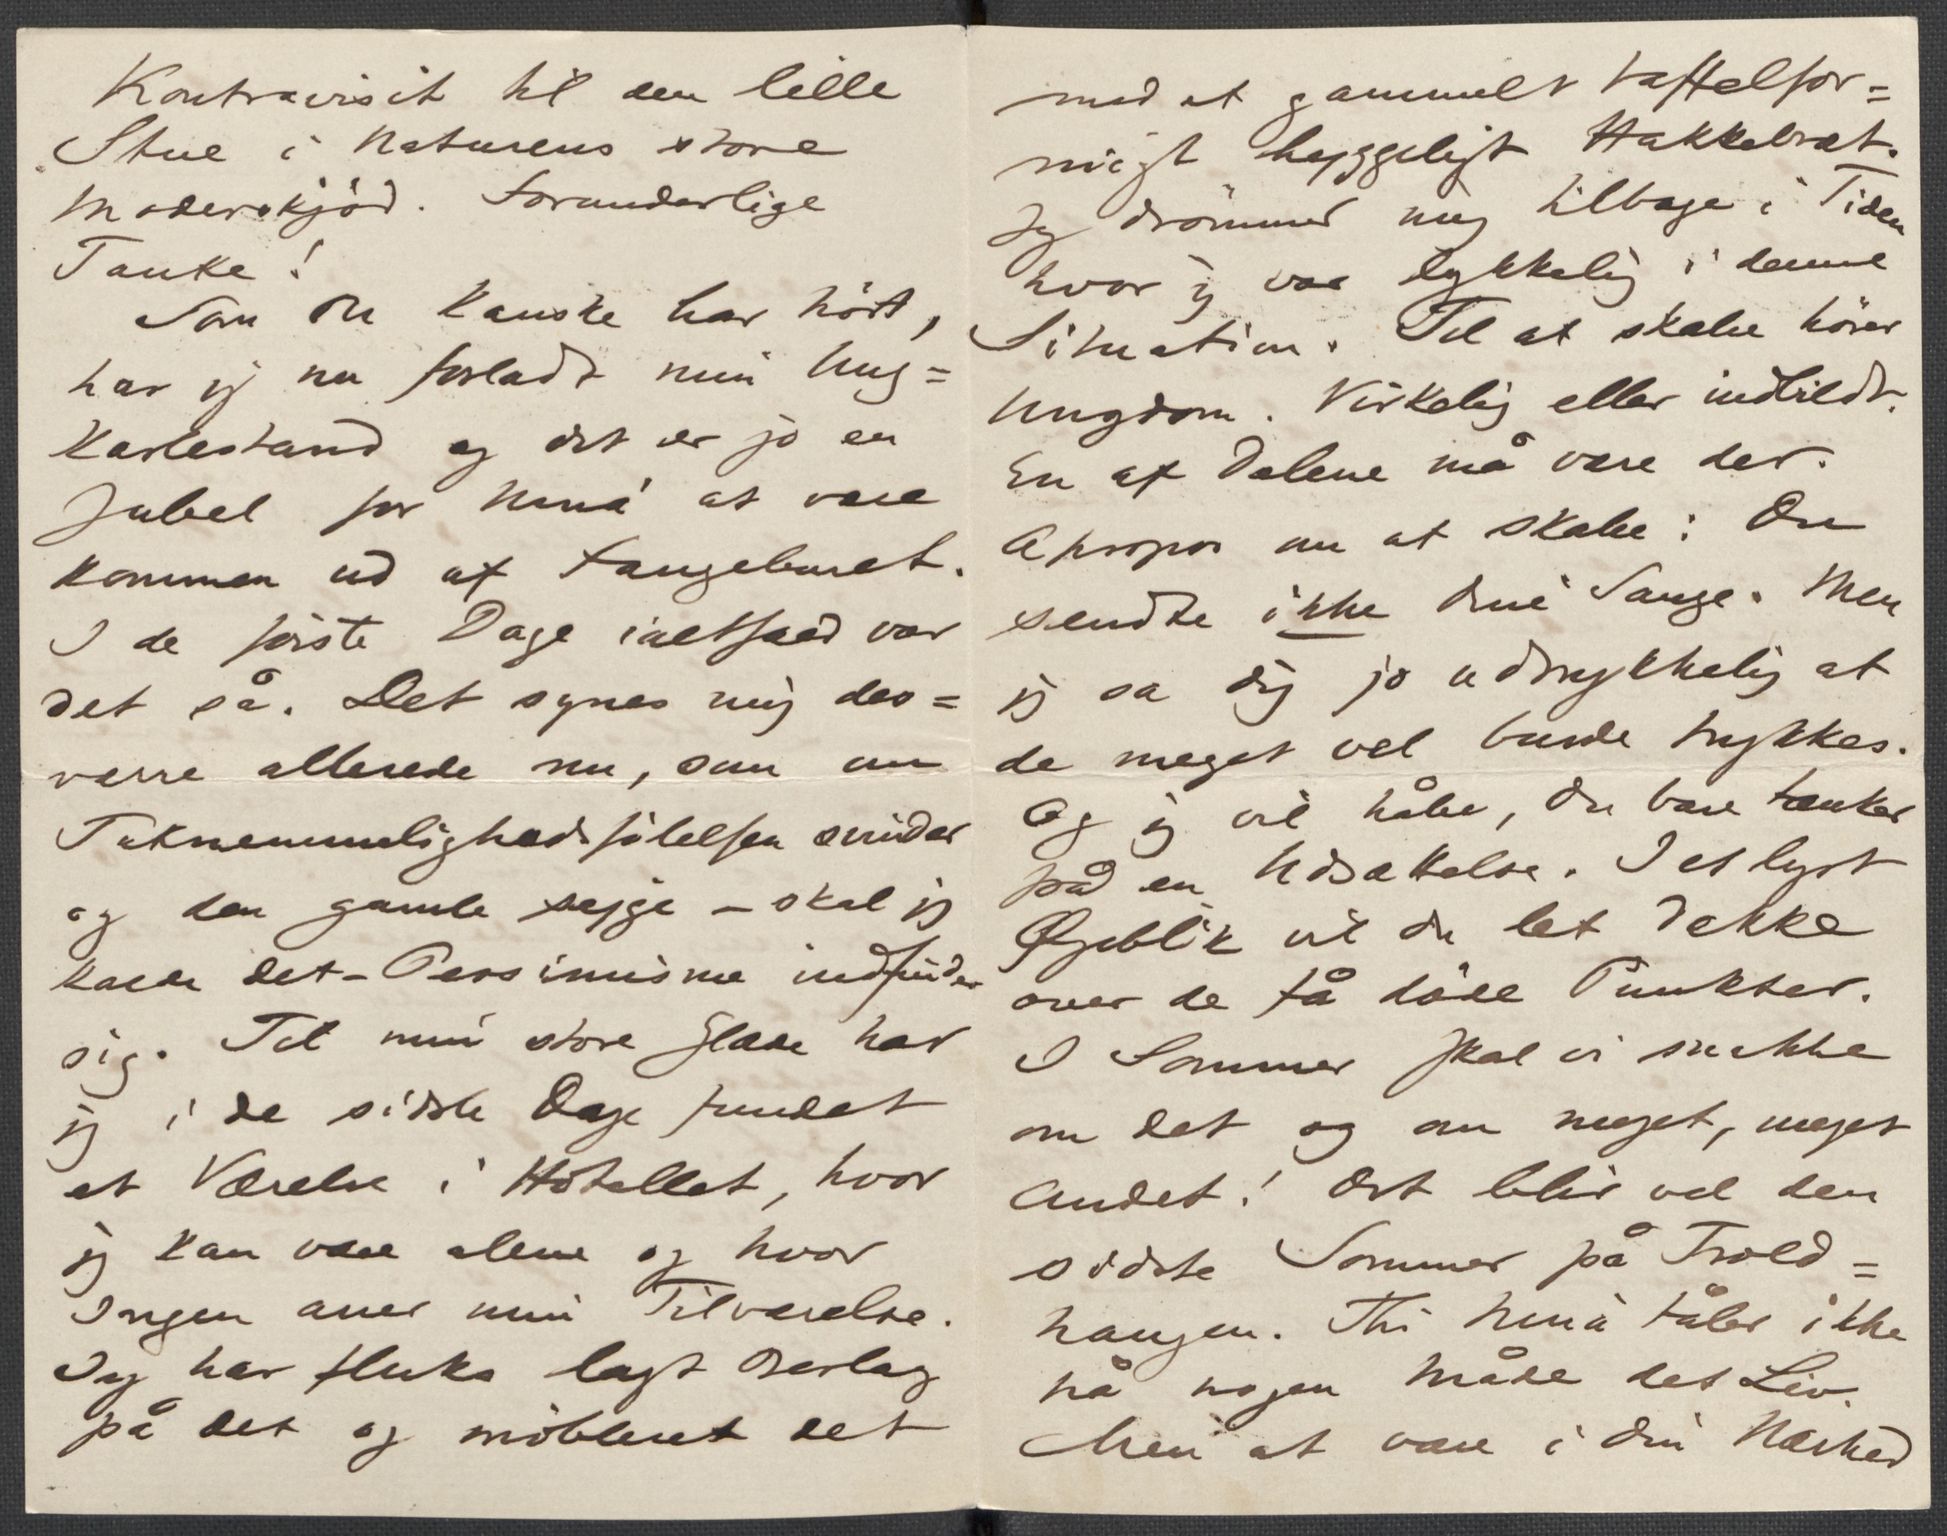 Kontravisit til den lille
Stue i Naturens store
Moderskjöd. Forunderlige
Tanke!
Som Du kanske har hört,
har jeg nu forladt min Ung=
karlestand og det er jo en
Jubel for Nina at være
kommen ud af Fangeburet.
I de förste Dage ialtfald var
det så. Det synes mig des=
værre allerede nu, som om
Taknemmelighedsfölelsen svinder
og den gamle sejge – skal jeg
kalde det – Pessimisme indfinder
sig. Til min store Glæde har
jeg i de sidste Dage fundet
et Værelse i Hôtellet, hvor
jeg kan være alene og hvor
Ingen aner min Tilværelse.
Jeg har fluks lagt Beslag
på det og möbleret det
med et gammelt taffelfor=
migt hyggeligt Hakkebræt.
Jeg drömmer mig tilbage i Tiden
hvor jeg var lykkelig i denne
Situation. Til at skabe hörer
Ungdom. Virkelig eller indbildt.
En af Delene må være der.
Apropos om at skabe: Du
sendte ikke dine Sange. Men
jeg sa dig jo udtrykkelig at
de meget vel burde trykkes.
Og jeg vil håbe, Du bare tænker
på en Udsættelse. I et lyst
Øjeblik vil du let dække
over de få döde Punkter.
I Sommer skal vi snakke
om det og om meget, meget
Andet! Det blir vel den
sidste Sommer på Trold=
haugen. Thi Nina tåler ikke
på nogen Måde det Liv.
Men at være i din Nærhed